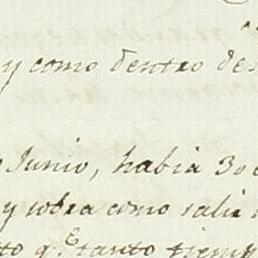 y como dentro de
Junio, habia 30
y sobra como salia
to q.e tanto tiemp